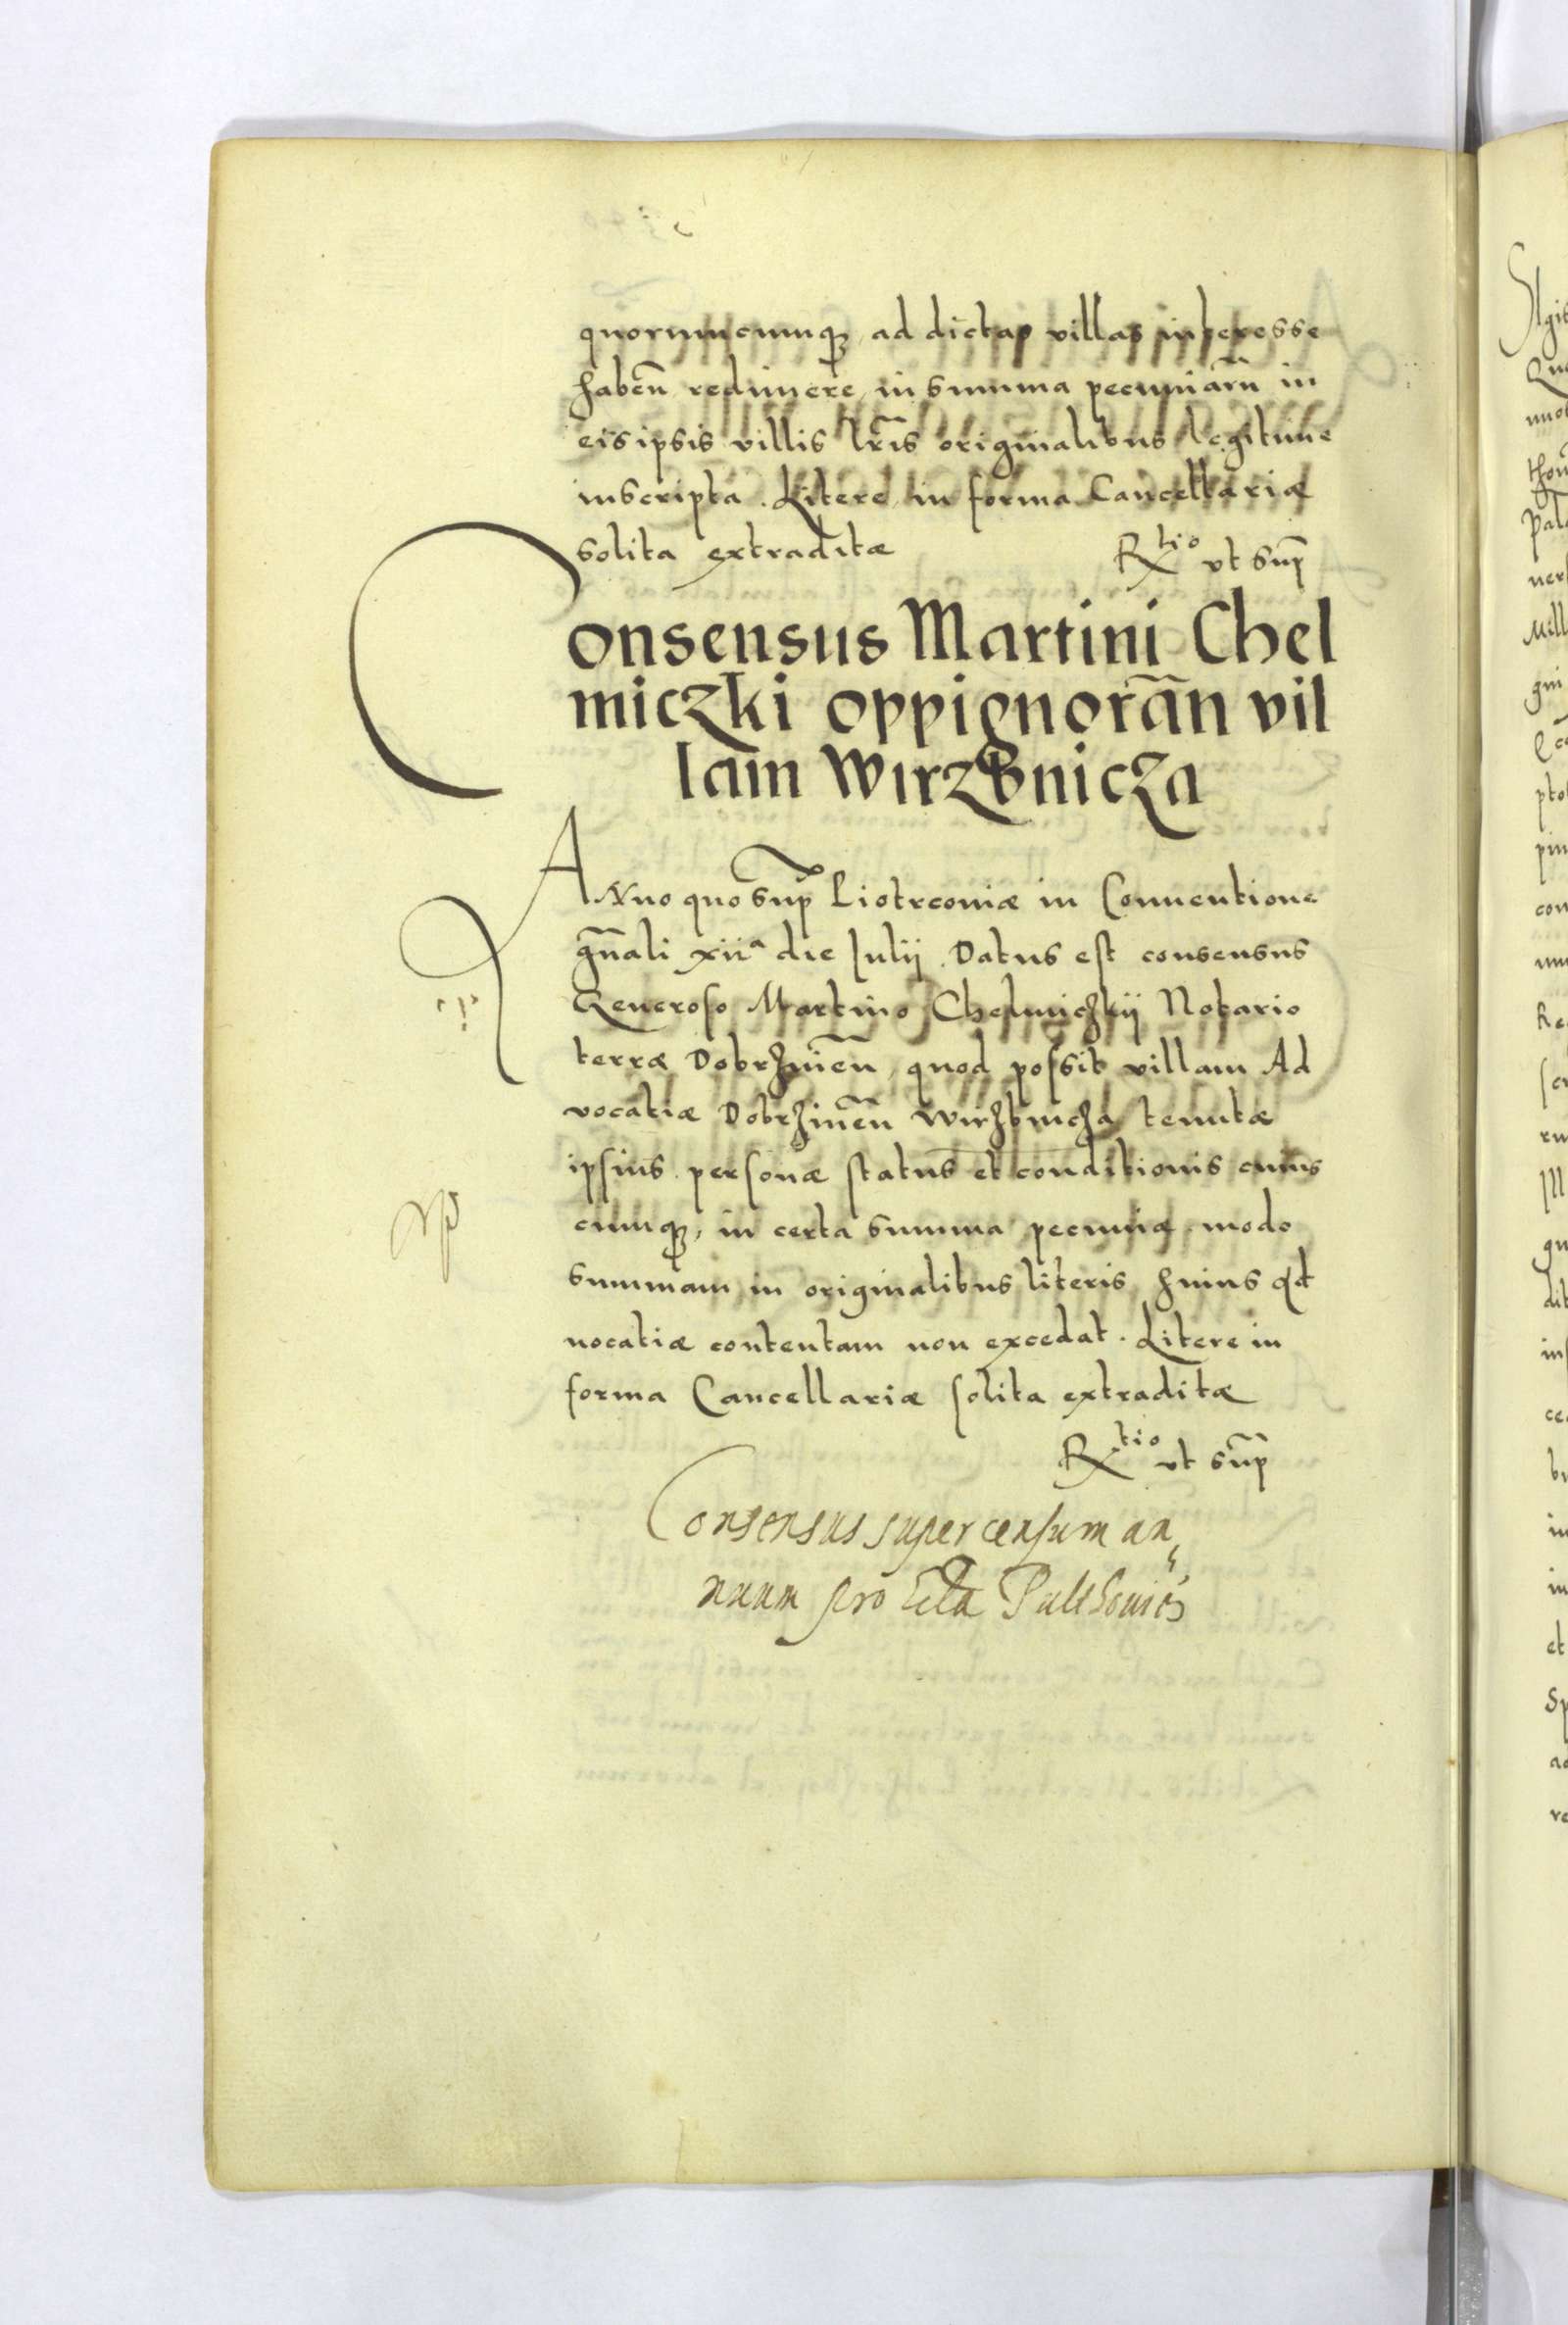 quorumcumqꝫ, ad dictas villas interesse
habeñ redimere, in summa pecuniarũ in
eis ipsis villis lr̃is originalibus legitime
inscripta. Litere in forma Cancellariæ
solita extraditæ
Rtio vt sup̃
Consensus Martini Chel
miczki oppignorãn vil
lam Wirzbnicza
ANno quo sup̃ Piotrcouiæ in Conuentione
gñali xiia die Iulij. Datus est consensus
Generoso Martino Chelmiczkij Notario
terræ Dobrzineñ, quod possit villam Ad
vocatiæ Dobrzineñ Wirzbnicza tenutæ
ipsius personæ status et conditionis cuius
cumqꝫ, in certa summa pecuniæ. modo
summam in originalibus literis huius Ad
uocatiæ contentam non excedat. Litere in
forma Cancellariæ solita extraditæ
Rtio vt sup̃
Consensus super censum an
nuum pro Ecła